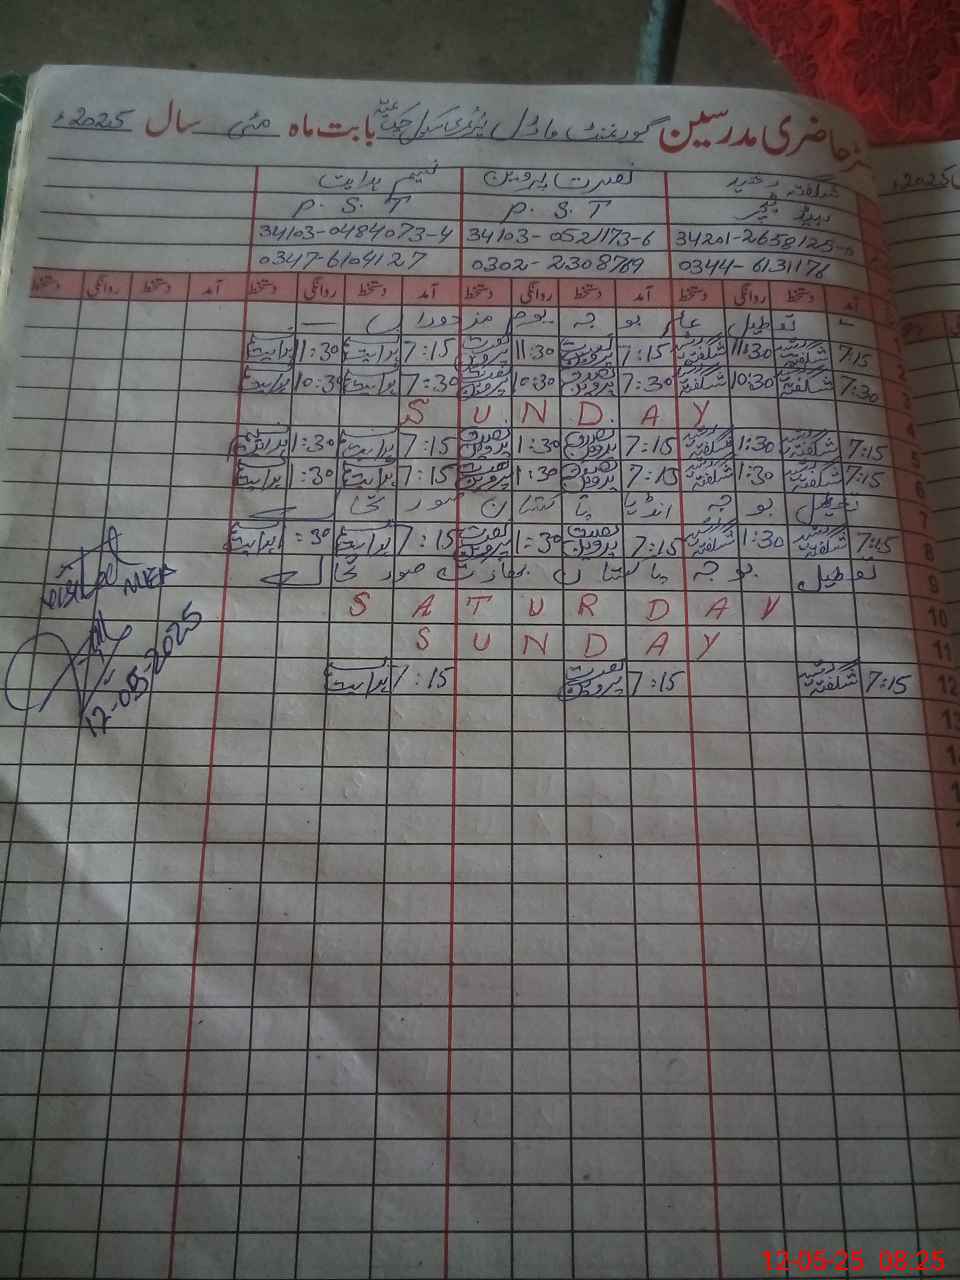 حاضری مدرسین گورنمنٹ ماڈل پرائمری سکول چک بابت ماہ مئی سال 2025ء
شگفتہ نصرت پروین نسیم ہدایت
ہیڈ ٹیچر P.S.T P.S.T
34201-2658125-0 34103-0521173-6 34103-0484073-4
0344-6131176 0302-2308769 0347-6104127
آمد دستخط روانگی دستخط آمد دستخط روانگی دستخط آمد دستخط روانگی دستخط آمد دستخط روانگی دستخط
1 تعطیل عام بوجہ یوم مزدوراں
2 7:15 شگفتہ 11:30 شگفتہ 7:15 نصرت پروین 11:30 نصرت پروین 7:15 ہدایت 11:30 ہدایت
3 7:30 شگفتہ 10:30 شگفتہ 7:30 نصرت پروین 10:30 نصرت پروین 7:30 ہدایت 10:30 ہدایت
4 SUNDAY
5 7:15 شگفتہ 1:30 شگفتہ 7:15 نصرت پروین 1:30 نصرت پروین 7:15 ہدایت 1:30 ہدایت
6 7:15 شگفتہ 1:30 شگفتہ 7:15 نصرت پروین 1:30 نصرت پروین 7:15 ہدایت 1:30 ہدایت
7 تعطیل بوجہ انڈیا پاکستان صورتحال
8 7:15 شگفتہ 1:30 شگفتہ 7:15 نصرت پروین 1:30 نصرت پروین 7:15 ہدایت 1:30 ہدایت
9 تعطیل بوجہ پاکستان بھارت صورتحال
10 SATURDAY
11 SUNDAY
12 7:15 شگفتہ 7:15 نصرت پروین 7:15 ہدایت
13
Visited MEA
12-05-2025
12-05-25 08:25